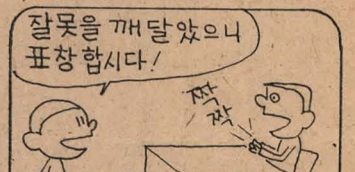 잘못을 깨달았으니
표창합시다!
짝
짝